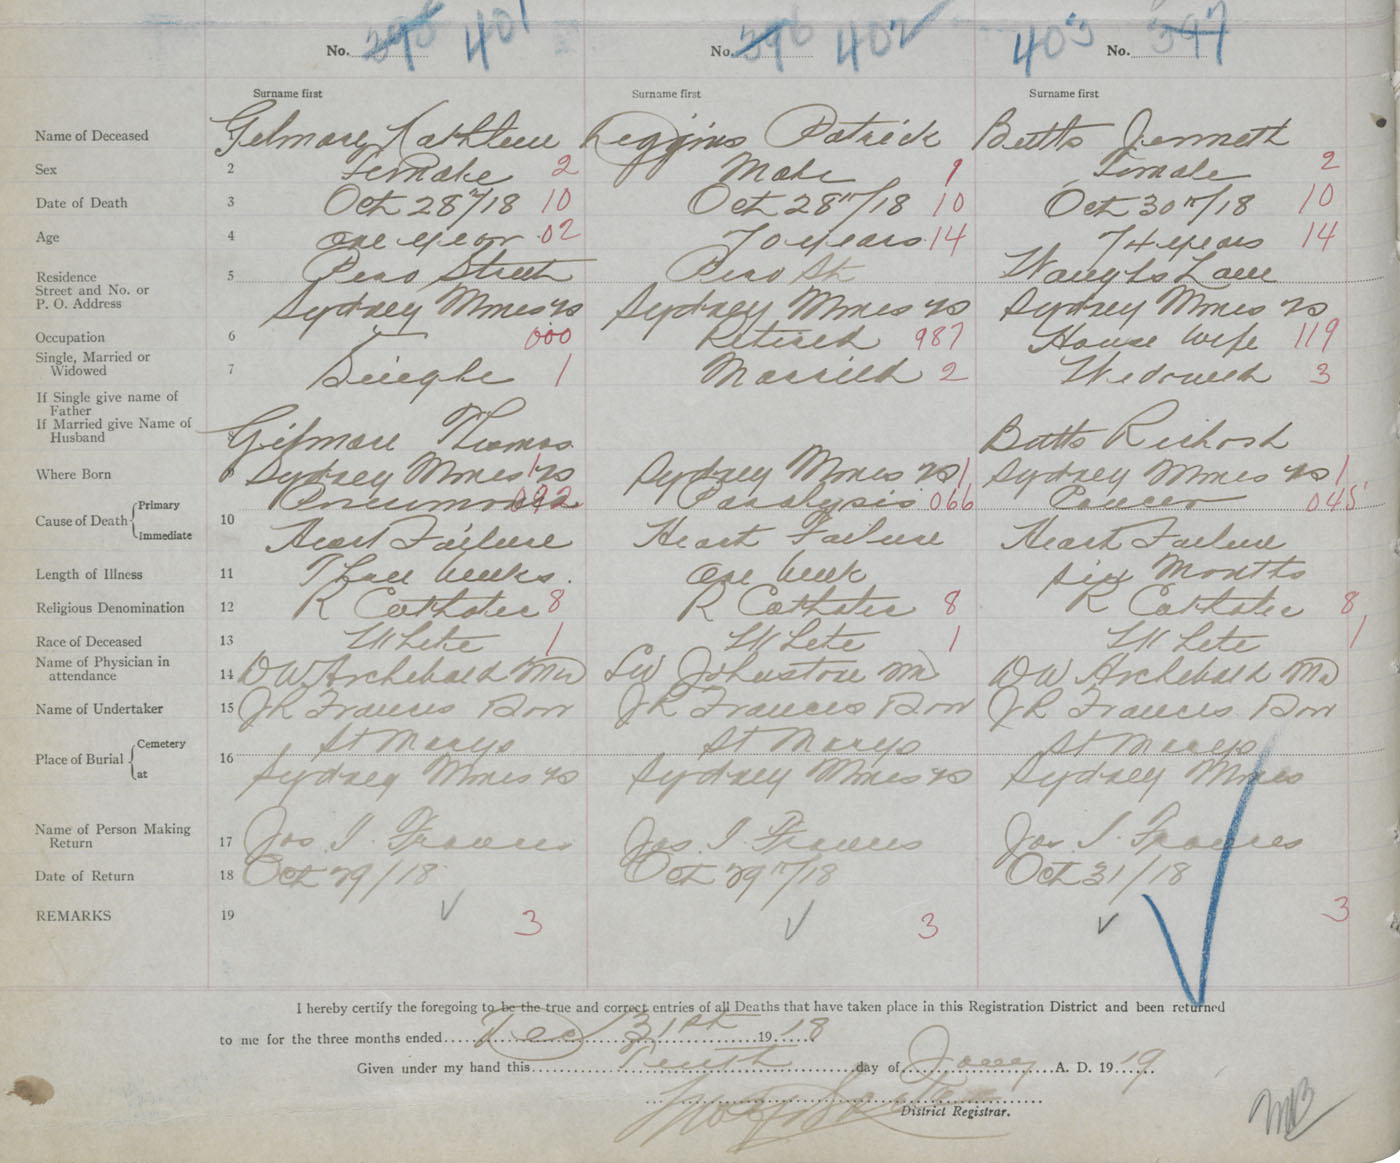 No. 396 401 No. 396 402 403 No. 397
Surname first Surname first Surname first
Name of Deceased 1 Gilmore Kathleen Diggins Patrick Butts Jennett
Sex 2 Female 2 Male 1 Female 2
Date of Death 3 Oct 28th/18 10 Oct 28th/18 10 Oct 30th/18 10
Age 4 one year 02 70 years 14 74 years 14
Residence 5 Street Waughs Lane
Street and No. or
P. O. Address Sydney Mines ns Sydney Mines ns Sydney Mines ns
Occupation 6 000 Retired 987 House Wife 119
Single, Married or
Widowed 7 Single 1 Married 2 Widowed 3
If Single give name of
Father
If Married give Name of
Husband 8 Gilmore Thomas Butts Richard
Where Born 9 Sydney Mines ns 1 Sydney Mines ns 1 Sydney Mines ns 1
Primary Pneumonia 092 Paralysis 066 Cancer 045
Cause of Death 10
Immediate Heart Failure Heart Failure Heart Failure
Length of Illness 11 Three Weeks. one Week six Months
Religious Denomination 12 R Catholic 8 R Catholic 8 R Catholic 8
Race of Deceased 13 White 1 White 1 White 1
Name of Physician in
attendance 14 DW Archibald MD Johnstone MD DW Archibald MD
Name of Undertaker 15 JR Frances Son JR Frances Son JR Frances Son
Cemetery St Marys St Marys St Marys
Place of Burial 16
at Sydney Mines ns Sydney Mines ns Sydney Mines
Name of Person Making
Return 17 Jos I. Frances Jos. I. Frances Jos I. Frances
Date of Return 18 Oct 29/18 Oct 29th/18 Oct 31/18
REMARKS 19 3 3 3
I hereby certify the foregoing to be the true and correct entries of all Deaths that have taken place in this Registration District and been returned
to me for the three months ended Dec 31st 1918
Given under my hand this Tenth day of Jany A. D. 1919
District Registrar.